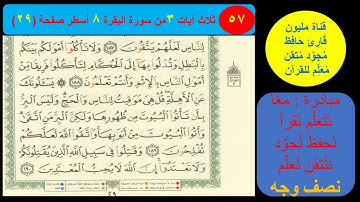 ٥٧
ثلاث آيات ٣ من سورة البقرة ٨ أسطر صفحة (٢٩)
قناة مليون
قارئ حافظ
مُجوّد مُتقن
مُعلّم للقرآن
مبادرة : معًا
نَتعلّم نَقرأ
نَحفظ نُجوّد
نُتقن نُعلّم
نصف وجه
لِلنَّاسِ لَعَلَّهُمْ يَتَّقُونَ ١٨٧ وَلَا تَأْكُلُوٓا۟ أَمْوَٰلَكُم بَيْنَكُم
بِٱلْبَٰطِلِ وَتُدْلُوا۟ بِهَآ إِلَى ٱلْحُكَّامِ لِتَأْكُلُوا۟ فَرِيقًا مِّنْ
أَمْوَٰلِ ٱلنَّاسِ بِٱلْإِثْمِ وَأَنتُمْ تَعْلَمُونَ ١٨٨ يَسْـَٔلُونَكَ
عَنِ ٱلْأَهِلَّةِ قُلْ هِىَ مَوَٰقِيتُ لِلنَّاسِ وَٱلْحَجِّ وَلَيْسَ ٱلْبِرُّ
بِأَن تَأْتُوا۟ ٱلْبُيُوتَ مِن ظُهُورِهَا وَلَٰكِنَّ ٱلْبِرَّ مَنِ ٱتَّقَىٰ
وَأْتُوا۟ ٱلْبُيُوتَ مِنْ أَبْوَٰبِهَا وَٱتَّقُوا۟ ٱللَّهَ لَعَلَّكُمْ
تُفْلِحُونَ ١٨٩ وَقَٰتِلُوا۟ فِى سَبِيلِ ٱللَّهِ ٱلَّذِينَ يُقَٰتِلُونَكُمْ
وَلَا تَعْتَدُوٓا۟ إِنَّ ٱللَّهَ لَا يُحِبُّ ٱلْمُعْتَدِينَ ١٩٠
٢٩